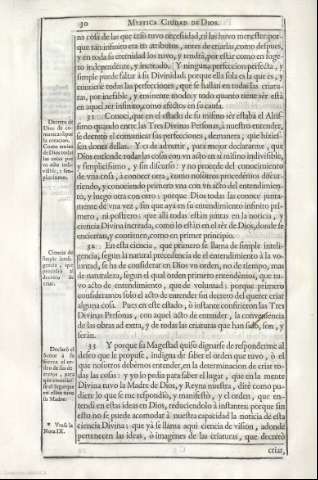 30 MYSTICA CIUDAD DE DIOS.
no cosa de las que crió tuvo necessidad, ni las huvo menester por-
que tan infinito era en atributos, antes de criarlas, como despues,
y en toda su eternidad los tuvo, y tendrá, por estar como en suge-
to independente, y increado. Y ninguna perfeccion perfecta, y
simple puede faltar à su Divinidad: porque ella sola es la que es, y
contiene todas las perfecciones, que se hallan en todas las criatu-
ras, por inefable, y eminente modo; y todo quanto tiene sér está
en aquel sér infinito, como efectos en su causa.
31 Conocí, que en el estado de su mismo sér estaba el Altíssi-
simo quando entre las Tres Divinas Personas, à nuestro entender,
se decretó el comunicar sus perfecciones, de manera, que hiciés-
sen dones dellas. Y es de advertir, para mejor declararme, que
Dios entiende todas las cosas con un acto en sí mismo indivisible,
y simplicissimo, y sin discurso: y no procede del conocimiento
de una cosa, à conocer otra, como nosotros procedemos discur-
riendo, y conociendo primero una con un acto del entendimien-
to, y luego otra con otro; porque Dios todas las conoce junta-
mente de una vez, sin que aya en su entendimiento infinito pri-
mero, ni postrero: que alli todas están juntas en la noticia, y
ciencia Divina increada, como lo están en el sér de Dios, donde se
encierran, y contienen, como en primer principio.
Decreto de
Dios de co-
municarse en
la creacion.
Como entien-
de Dios todas
las cosas por
un acto indi-
visible, i sim-
plicissimo.
32 En esta ciencia, que primero se llama de simple inteli-
gencia, segun la natural precedencia de el entendimiento à la vo-
luntad, se ha de considerar en Dios un orden, no de tiempo, mas
de naturaleza, segun el qual orden primero entendémos, que tu-
vo acto de entendimiento, que de voluntad: porque primero
consideramos solo el acto de entender sin decreto del querer criar
alguna cosa. Pues en este estado, ò instante confirieron las Tres
Divinas Personas, con aquel acto de entender, la convenien̄cia
de las obras ad extra, y de todas las criaturas que han sido, son, y
serán.
Ciencia de
simple inteli-
gencia, que
precedió al
decreto de
criar.
33 Y porque su Magestad quiso dignarse de responderme al
deseo que le propuse, indigna de saber el orden que tuvo, ò el
que nosotros debemos entender, en la determinacion de criar to-
das las cosas: y yo lo pedia para saber el lugar, que en la mente
Divina tuvo la Madre de Dios, y Reyna nuestra, diré como pu-
diere lo que se me respondió, y manifestó, y el orden, que en-
tendí en estas ideas en Dios, reduciendolo à instantes: porque sin
esto no se puede acomodar à nuestra capacidad la noticia de esta
ciencia Divina: que yá se llama aquí ciencia de vision, adonde
pertenecen las ideas, ò imagenes de las criaturas, que decretó
Declaró el
Señor à la
* Vease la
Nota IX.
criar,